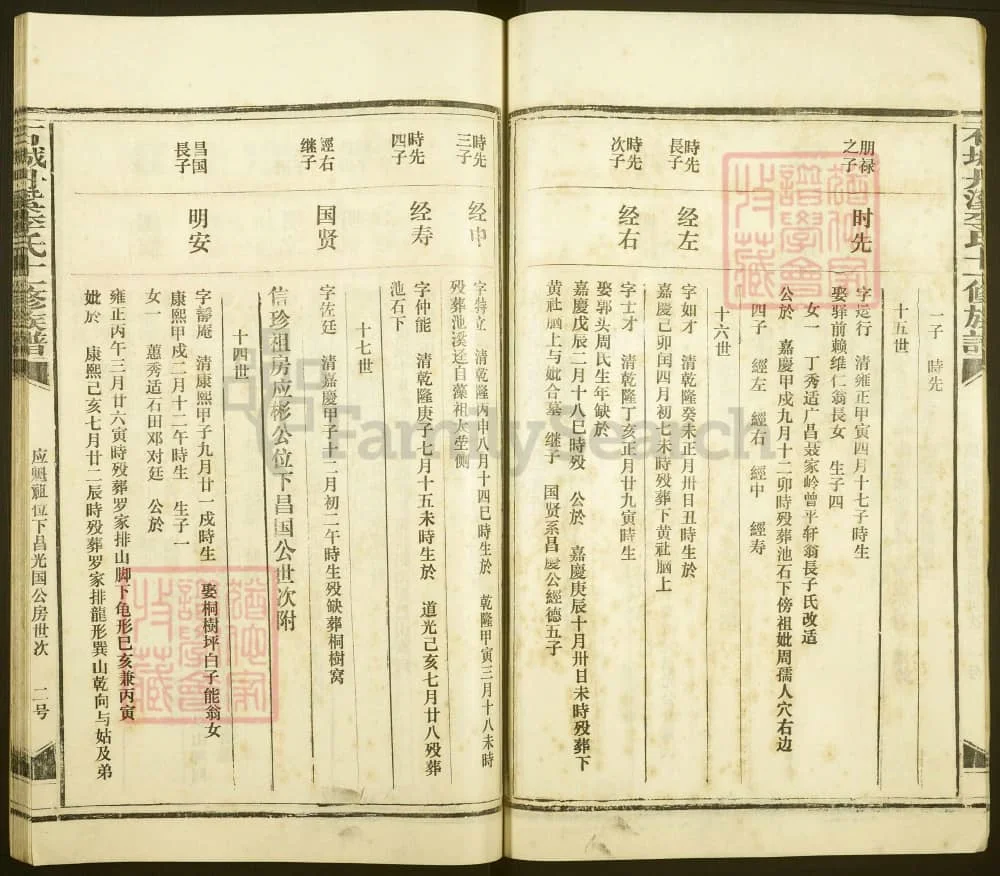 一子　時先
十五世
朋禄之子
时先
字运行　清雍正甲寅四月十七子時生
娶驿前赖维仁翁長女　生子四
女一　丁秀适广昌聂家岭曾平轩翁長子氏改适
公於　嘉慶甲戌九月十二卯時殁葬池石下傍祖妣周孺人穴右边
四子　經左　經右　經中　經寿
十六世
時先長子
经左
字如才　清乾隆癸未正月卅日丑時生於
嘉慶己卯闰四月初七未時殁葬下黄社腦上
時先次子
经右
字士才　清乾隆丁亥正月廿九寅時生
娶郭头周氏生年缺於
嘉慶戊辰二月十八巳時殁　公於　嘉慶庚辰十月卅日未時殁葬下
黄社腦上与妣合墓　继子　国贤系昌慶公經德五子
時先三子
经中
字特立　清乾隆丙申八月十四巳時生於　乾隆甲寅三月十八未時
殁葬池溪迳自藻祖大茔侧
時先四子
经寿
字仲能　清乾隆庚子七月十五未時生於　道光己亥七月廿八殁葬
池石下
十七世
經右继子
国贤
字佐廷　清嘉慶甲子十二月初二午時生殁缺葬桐樹窝
信珍祖房应彬公位下昌国公世次附
十四世
昌国長子
明安
字静庵　清康熙甲子九月廿一戌時生　娶桐樹坪白子能翁女
康熙甲戌二月十二午時生　生子一
女一　蕙秀适石田邓对廷　公於
雍正丙午三月廿六寅時殁葬罗家排山脚下龟形巳亥兼丙寅
妣於　康熙己亥七月廿二辰時殁葬罗家排龍形巽山乾向与姑及弟
应魁祖位下昌光国公房世次　二号
FamilySearch